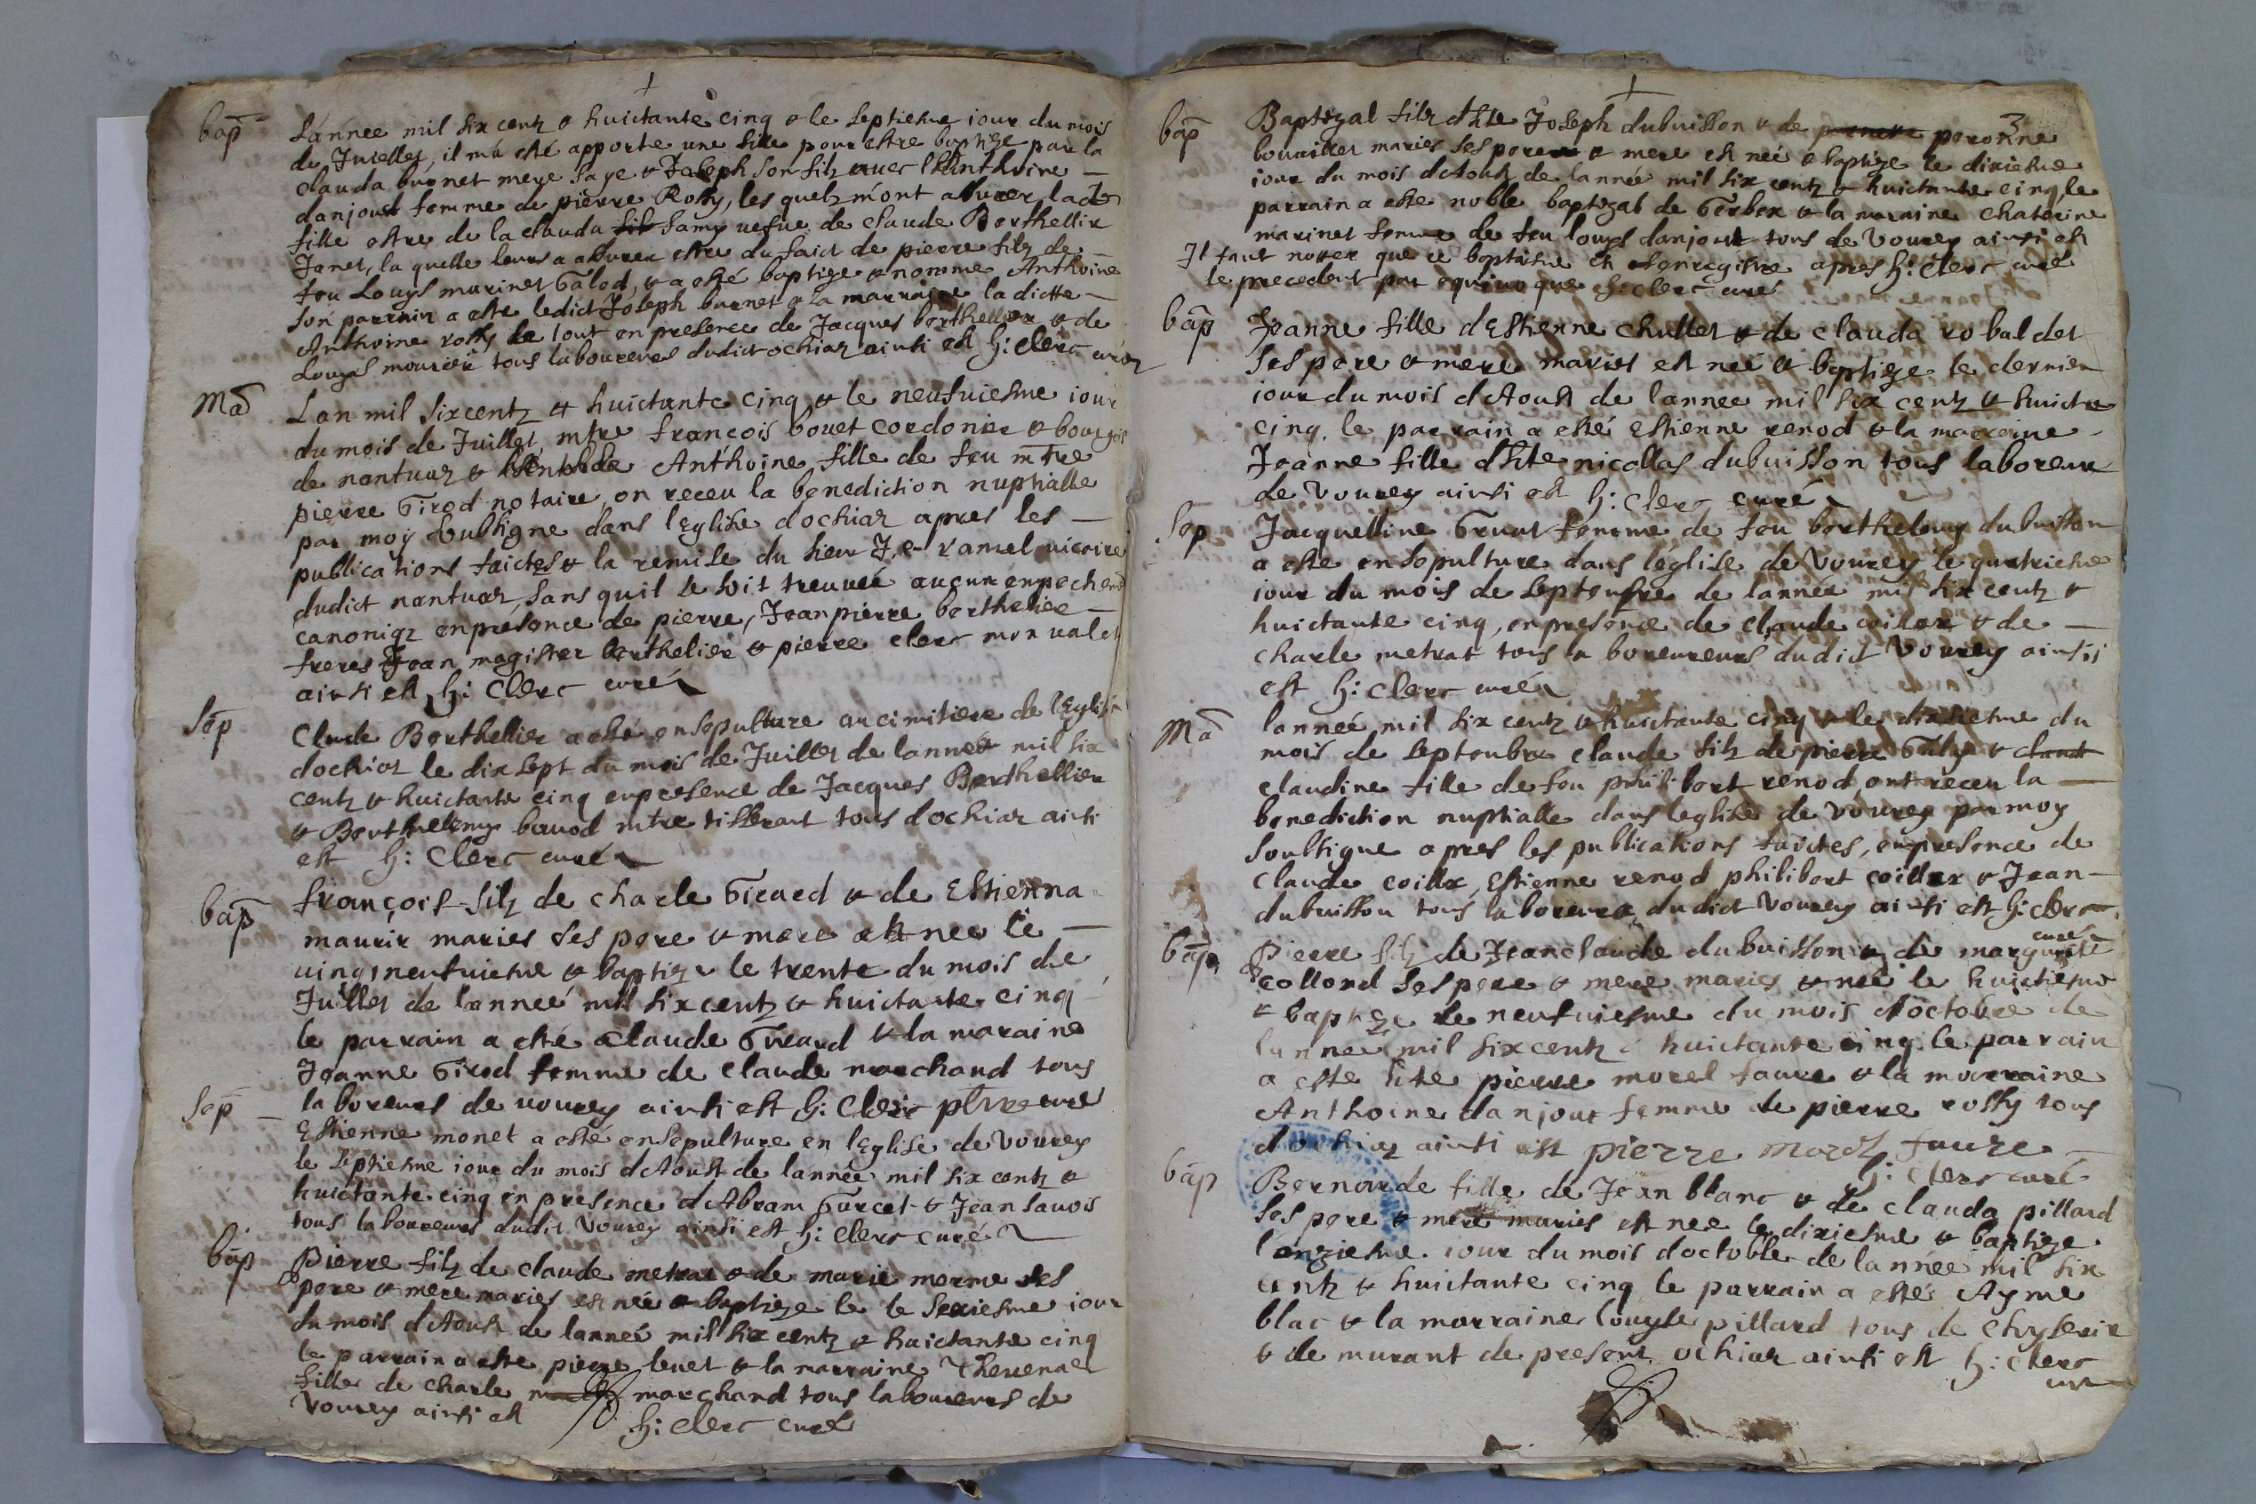 bap
L'annee mil six centz & huictante cinq & le septiesme iour du mois
de Juiellet, il m'a esté apporte une fille pour estre baptize par la
clauda burnet meye saye & Joseph son filz avec l'Anthoine
danjout femme de pierre Rossy, les quelz m'ont assurer lade
fille estre de la clauda famy vefue de claude Berthellier
Janet, la quelle leurs a assurer estre du faict de pierre filz de
feu Louys marinet Galod, & a esté baptize & nomme Anthoine
son parrain a este ledict Joseph burnet & la marraine la dicte
Anthoine rossy le tout en presence de Jacques berthellier & de
Louys mourier tous laboureurs dudict ochiaz ainsi est h: clerc curé
Ma
L'an mil sixcentz & huictante cinq & le neufuiesme iour
du mois de Juillet mtre françois bouet cordonier & bourgois
de nantuaz & Anthoine fille de feu mtre
pierre Girod notaire, on receu la benediction nuptialle
par moy soubsigne dans l'Eglise dochiaz apres les
publications faictes & la remise du sieur Ramel vicaire
dudict nantuaz, sans quil se soit treuueé aucun enpechem
canoniqz enpresence de pierre, Jeanpierre berthelier
freres Jean magister berthelier & pierre clerc mon valet
ainsi est h: Clerc curé
Sep
Clude Berthellier a esté ensepulture au cimitiere de l'Eglise
dochiaz le dix sept du mois de Juillet de lannee mil six
centz & huictante cinq enpresence de Jacques Berthellier
& Berthelemy bauod mtre tisserant tous dochiaz ainsi
est h: Clerc curé
bap
françois filz de charle Girard & de Estienna
maurir maries ses pere & mere est nee le
uingtneufuiesme & baptize le trente du mois de
Juillet de l'anneé mil sixcentz & huictante cinq
le parrain a esté Claude Girard & la maraine
Jeanne Girod femme de claude marchand tous
laboreurs de vourey ainsi est h: Clerc pbre cure
Sep
Estienne monet a esté ensepulture en l'eglise de Vourey
le septiesme iour du mois dAoust de lannee mil six centz &
huictante cinq en presence dAbram Gurcet & Jean sauois
tous laboureurs dudit Vourey ainsi est h: Clerc curé
bap
Pierre filz de claude metrat & de marie merme ses
pere & mere maries est née & baptize le le sexiesme iour
du mois dAoust de lanneé mil six centz & huictante cinq
le parrain a este pierre leuet & la marraine Theuena
fille de charle marchand tous laboureurs de
Vourey ainsi est
h: clerc curé
3
bap
Baptizal filz dhte Joseph dubuisson & de peronne
bouuiret maries ses pere & mere est neé & baptize le dixiesme
iour du mois dAoust de lanneé mil six centz & huictante cinq, le
parrain a este noble baptizal de Gerbex & la maraine Chaterine
marinet femme de feu louys danjout tous de Vourey ainsi est
Il faut noter que ce baptesme est enregistre apres h: Clerc curé
le precedent par equiuoque h: clerc curé
bap
Jeanne fille dEstienne chullet & de clauda robaldet
ses pere & mere maries est neé & baptize le dernier
iour du mois dAoust de lannee mil six centz & huicte
cinq. le parrain a esté Estienne renod & la marraine
Jeanne fille dhte nicollas dubuisson tous laboreurs
de Vourey ainsi est h: Clerc curé
Sep
Jacquelline Gruat femme de feu berthelemy dubuisson
a este ensepulture dans l'église de Vourey le quatriesme
iour du mois de septembre de lanneé mil six centz &
huictante cinq, enpresence de claude coiller & de
charle metrat tous laboreureurs dudict Vourey ainsii
est h: Clerc curé
Ma
lanneé mil six centz & huictante cinq & le dixiesme du
mois de septenbre claude filz de pierre Galy &
claudine fille de feu philibert renod ont receu la
benediction nuptialle dans leglise de vourey par moy
soubsigne apres les publications faictes, enpresence de
Claude coiller, Estienne renod philibert coiller & Jean
dubuisson tous laboreurs dudict Vourey ainsi est h: clerc
curé
bap
Pierre filz de Jeanclaude dubuisson & de marguerite
collond ses pere & mere maries & neé le huictiesme
& baptize le neufuiesme du mois doctobre de
lanneé mil sixcentz & huictante cinq le parrain
a este hte pierre morel faure & la marraine
Anthoine danjout femme de pierre rossy tous
dochiaz ainsi est pierre morel faure
h: clerc curé
bap
Bernarde fille de Jean blanc & de clauda pillard
ses pere & mere maries est nee le dixiesme & baptize
l'onziesme iour du mois doctobre de lanneé mil six
centz & huictante cinq le parrain a esté Ayme
blac & la marraine louyse pillard tous de Chyserie
& demurant de present ochiaz ainsi est h: clerc
cure